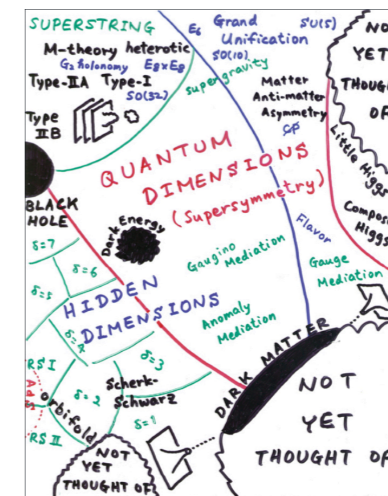 SUPERSTRING
M-theory heterotic
G2 holonomy E8×E8
Type-IIA Type-I
SO(32)
Type
IIB
E6 Grand SU(5)
Unification
SO(10)
supergravity
Matter
Anti-matter
Asymmetry
CP
NO
YET
THOUGHT O
Little Higgs
Composi
Higgs
QUANTUM
DIMENSIONS
(Supersymmetry)
BLACK
HOLE
Dark Energy
Gaugino
Mediation
Flavor
Gauge
Mediation
δ=7
δ=6
δ=5
HIDDEN
DIMENSIONS
δ=4
Anomaly
Mediation
δ=3
DARK MATTER
RS I
AdS
orbifold
δ=2
Scherk-
Schwarz
δ=1
RS II
NOT
YET
THOUGHT OF
NOT
YET
THOUGHT OF